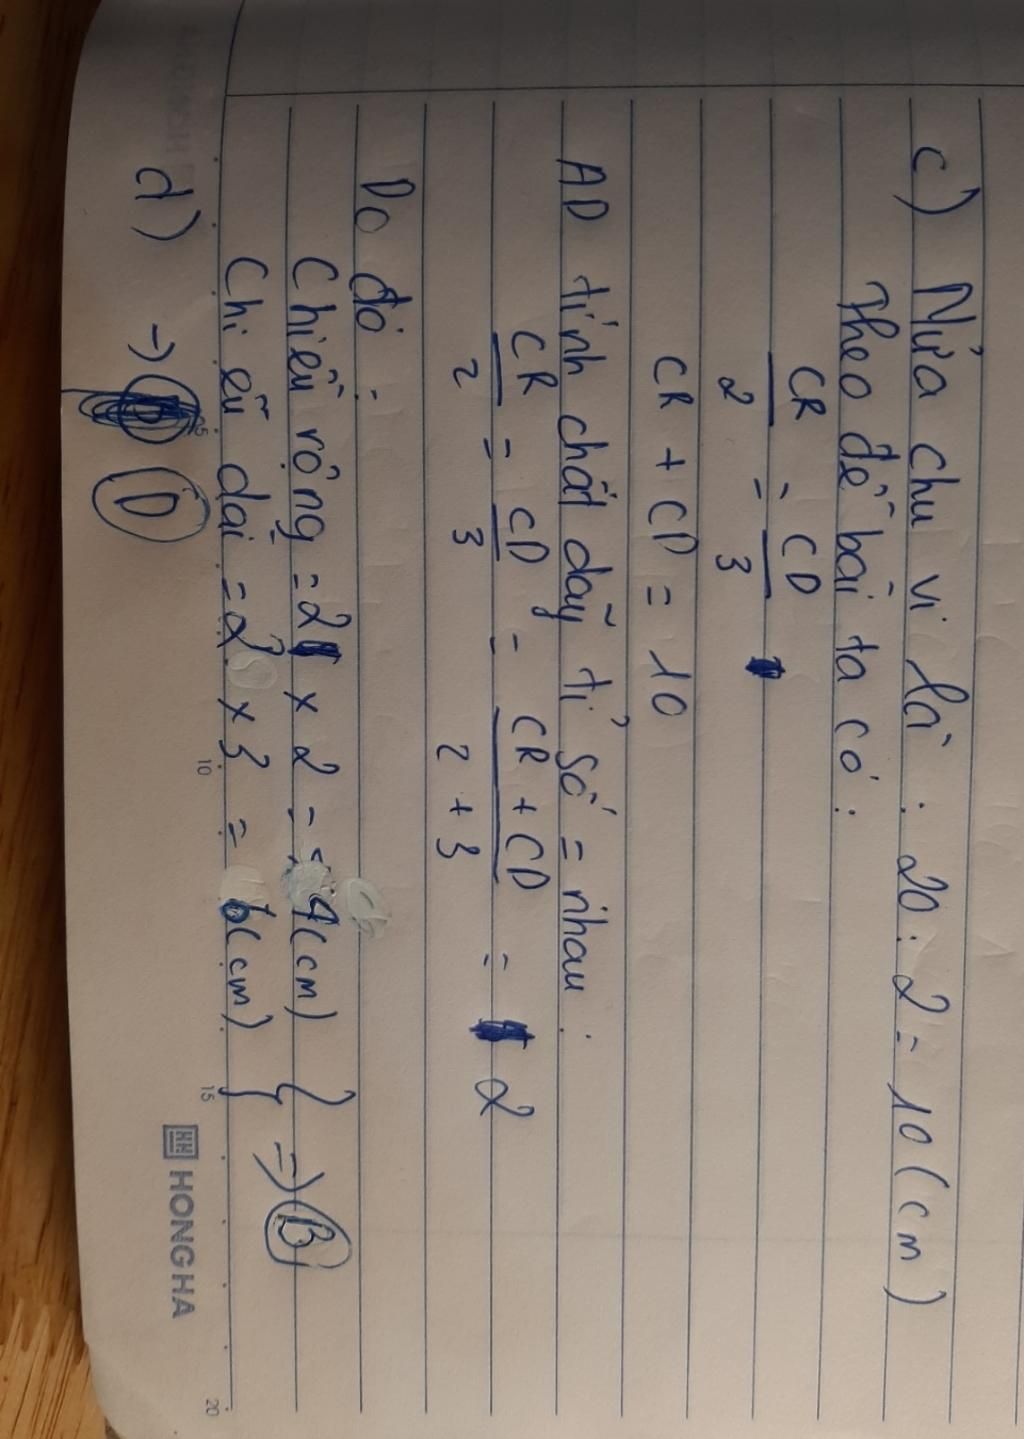 c) Nửa chu vi là : 20 : 2 = 10 (cm)
Theo đề bài ta có :
CR/2 = CD/3
CR + CD = 10
AD tính chất dãy tỉ số = nhau :
CR/2 = CD/3 = CR + CD/2 + 3 = 2
Do đó :
Chiều rộng = 2 x 2 = 4 (cm)
Chiều dài = 2 x 3 = 6 (cm) } => B
d) -> D
5 10 15 20
HONG HA